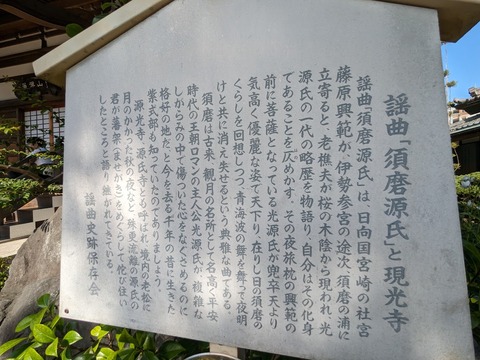 謡曲「須磨源氏」と現光寺
謡曲「須磨源氏」は、日向国宮崎の社官
藤原興範が、伊勢参宮の途次、須磨の浦に
立寄ると、老樵夫が桜の木陰から現われ、光
源氏の一代の略歴を物語り、自分はその化身
であることを仄めかす。その夜旅枕の興範の
前に菩薩となっている光源氏が兜率天より
気高く優麗な姿で天下り、在りし日の須磨の
くらしを回想しつつ、青海波の舞を舞って夜明
けと共に消え失せるという典雅な曲である。
須磨は古来、観月の名所として名高く、平安
時代の王朝ロマンの主人公光源氏が、複雑な
しがらみの中で傷ついた心をなぐさめるのに
格好の地だ、と今を去る千年の昔に生きた
紫式部が知っていたのでありましょう。
源光寺、源氏寺とも呼ばれ、境内の老松に
月のかかった秋の夜など、殊更流離の源氏の
君が藩架（ませがき）をめぐらして侘び住い
したところと語り継がれてきている。
謡曲史跡保存会